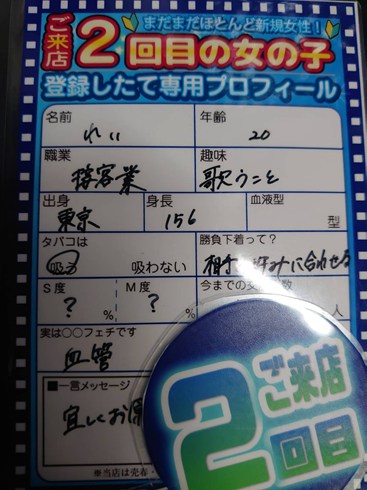 まだまだほとんど新規女性！
ご来店2回目の女の子
登録したて専用プロフィール
名前 れい 年齢 20
職業 接客業 趣味 歌うこと
出身 東京 身長 156 血液型 型
タバコは 吸う 吸わない 勝負下着って？ 相手 好みに合わせる
S度 ? % M度 ? % 今までの 人
実は○○フェチです
血管
■一言メッセージ
宜しくお願
※当店は売春・
ご来店
2
回目